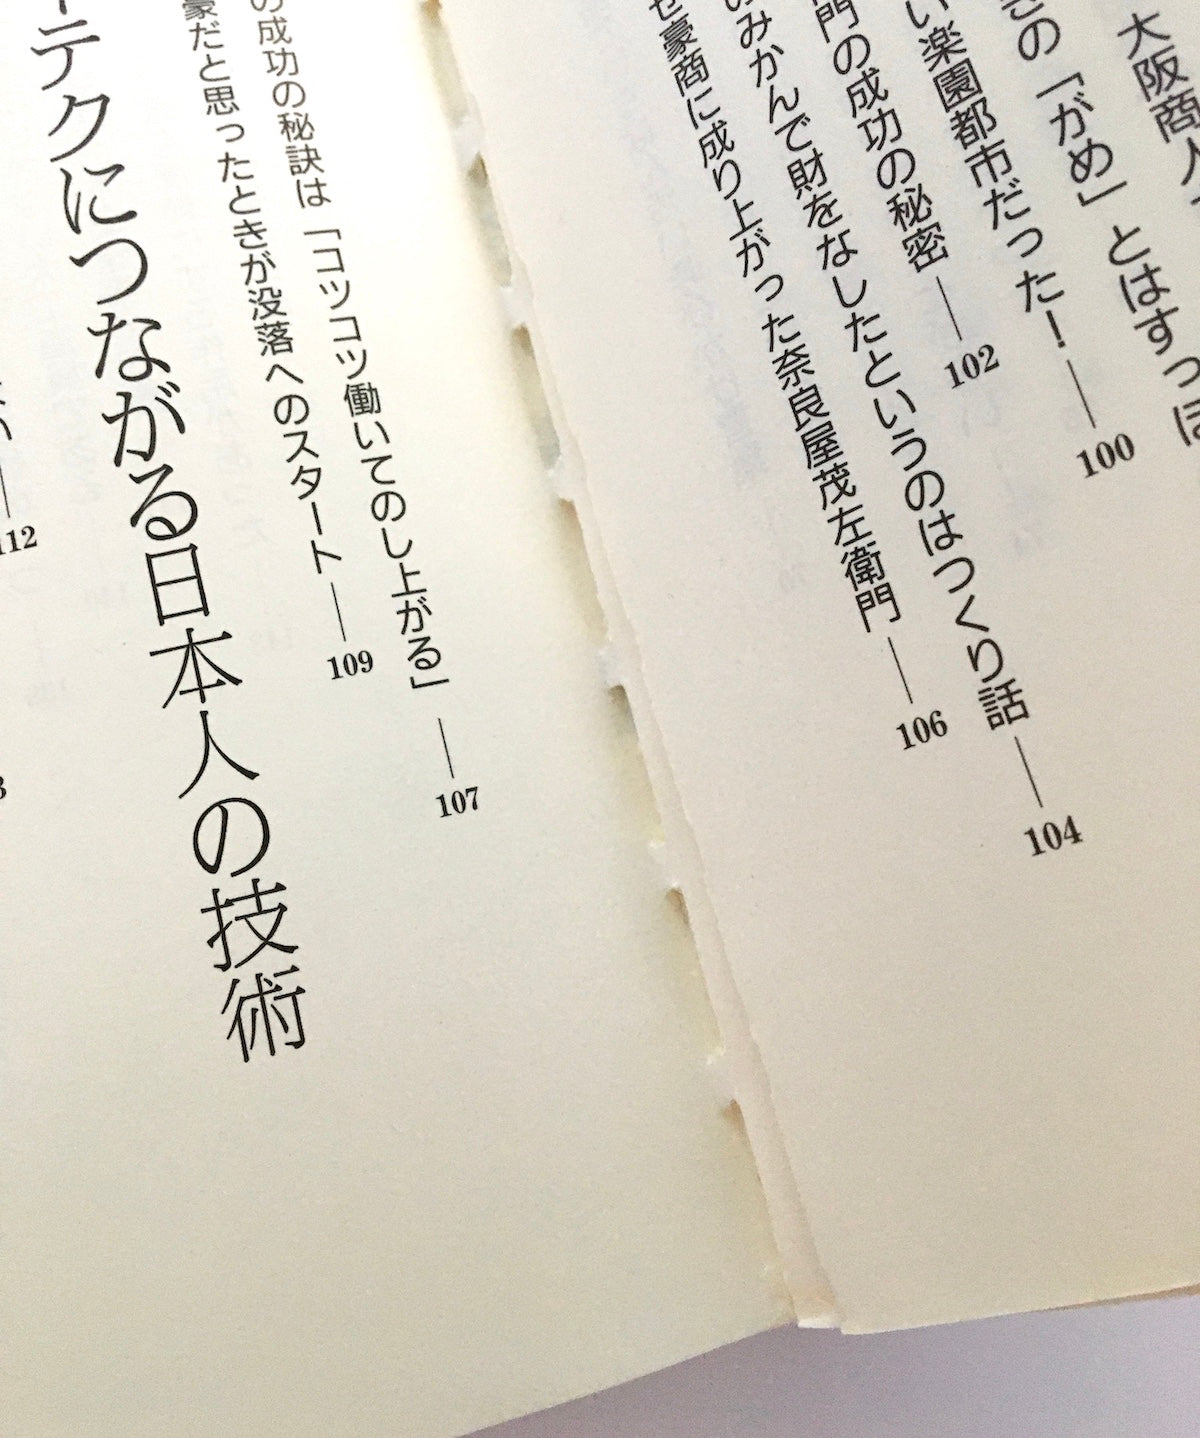 大阪商人
この「がめ」とはすっぽ
い楽園都市だった!——100
門の成功の秘密——102
のみかんで財をなしたというのはつくり話——104
せ豪商に成り上がった奈良屋茂左衛門——106
の成功の秘訣は「コツコツ働いてのし上がる」——107
豪だと思ったときが没落へのスタート——109
ーテクにつながる日本人の技術
い——112